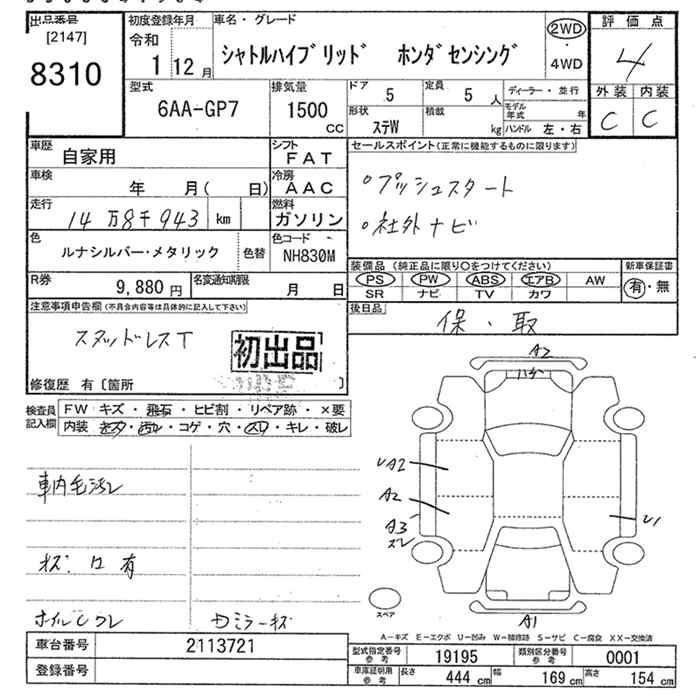 出品番号
[2147]
8310
初度登録年月
令和
1 12月
車名・グレード
シャトルハイブリッド ホンダセンシング
2WD
・
4WD
評価点
4
外装 内装
C C
型式
6AA-GP7
排気量
1500
CC
ドア 5
定員 5 人
形状 ステW
積載 kg
ディーラー・並行
モデル年式 年
ハンドル 左・右
車歴 自家用
シフト FAT
車検 年 月( 日)
冷房 AAC
走行 14万8千943 km
燃料 ガソリン
色 ルナシルバー・メタリック 色替
色コード NH830M
R券 9,880円
名変通知期限 月 日
セールスポイント(正常に機能するものに限ります)
○プッシュスタート
○社外ナビ
装備品(純正品に限り○をつけてください)
PS PW ABS エアB AW
SR ナビ TV カワ
新車保証書
有・無
後日品
保・取
注意事項申告欄(不具合内容等は具体的に記入して下さい)
スタッドレスT
初出品
修復歴 有〔箇所 〕
検査員記入欄
FW キズ・飛石・ヒビ割・リペア跡・×要
内装 キズ・汚れ・コゲ・穴・スレ・キレ・破レ
車内毛汚レ
ホイルCワレ
ДミラーキズA2
ハチ
UA2
A2
A3
ズレ
U1
A1
スペア
A-キズ E-エクボ U-凹み W-補修跡 S-サビ C-腐食 XX-交換済
車台番号 2113721
登録番号
型式指定番号 参考 19195
類別区分番号 参考 0001
車庫証明用 参考 長さ 444 cm 幅 169 cm 高さ 154 cm